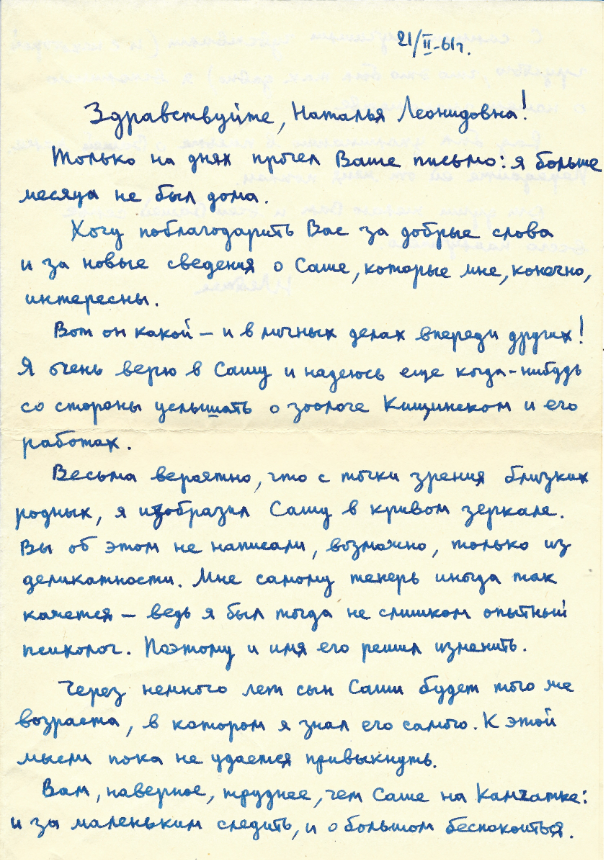 21/II-61г.
Здравствуйте, Наталья Леонидовна!
Только на днях прочел Ваше письмо: я больше
месяца не был дома.
Хочу поблагодарить Вас за добрые слова
и за новые сведения о Саше, которые мне, конечно,
интересны.
Вот он какой – и в личных делах впереди других!
Я очень верю в Сашу и надеюсь еще когда-нибудь
со стороны услышать о зоологе Кищинском и его
работах.
Весьма вероятно, что с точки зрения близких
родных, я изобразил Сашу в кривом зеркале.
Вы об этом не написали, возможно, только из
деликатности. Мне самому теперь иногда так
кажется – ведь я был тогда не слишком опытный
психолог. Поэтому и имя его решил изменить.
Через немного лет сын Саши будет того же
возраста, в котором я знал его самого. К этой
мысли пока не удается привыкнуть.
Вам, наверное, труднее, чем Саше на Камчатке:
и за маленьким следить, и о большом беспокоиться.